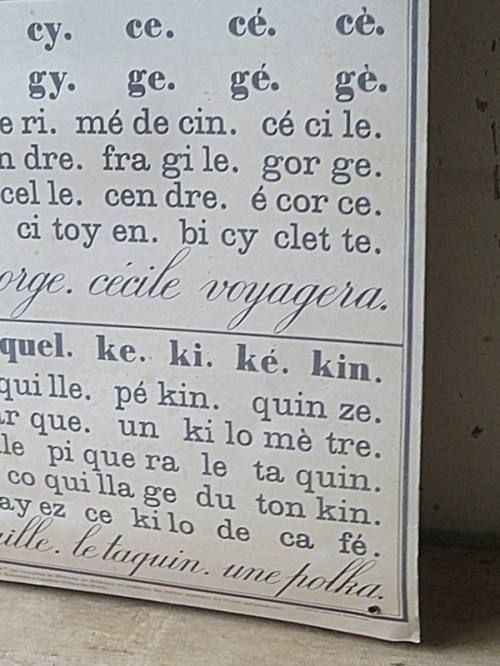 cy. ce. cé. cè.
gy. ge. gé. gè.
e ri. mé de cin. cé ci le.
n dre. fra gi le. gor ge.
cel le. cen dre. é cor ce.
ci toy en. bi cy clet te.
orge. cécile voyagera.
quel. ke. ki. ké. kin.
qui lle. pé kin. quin ze.
ar que. un ki lo mè tre.
le pi que ra le ta quin.
co qui lla ge du ton kin.
ay ez ce ki lo de ca fé.
ille. le taquin. une polka.